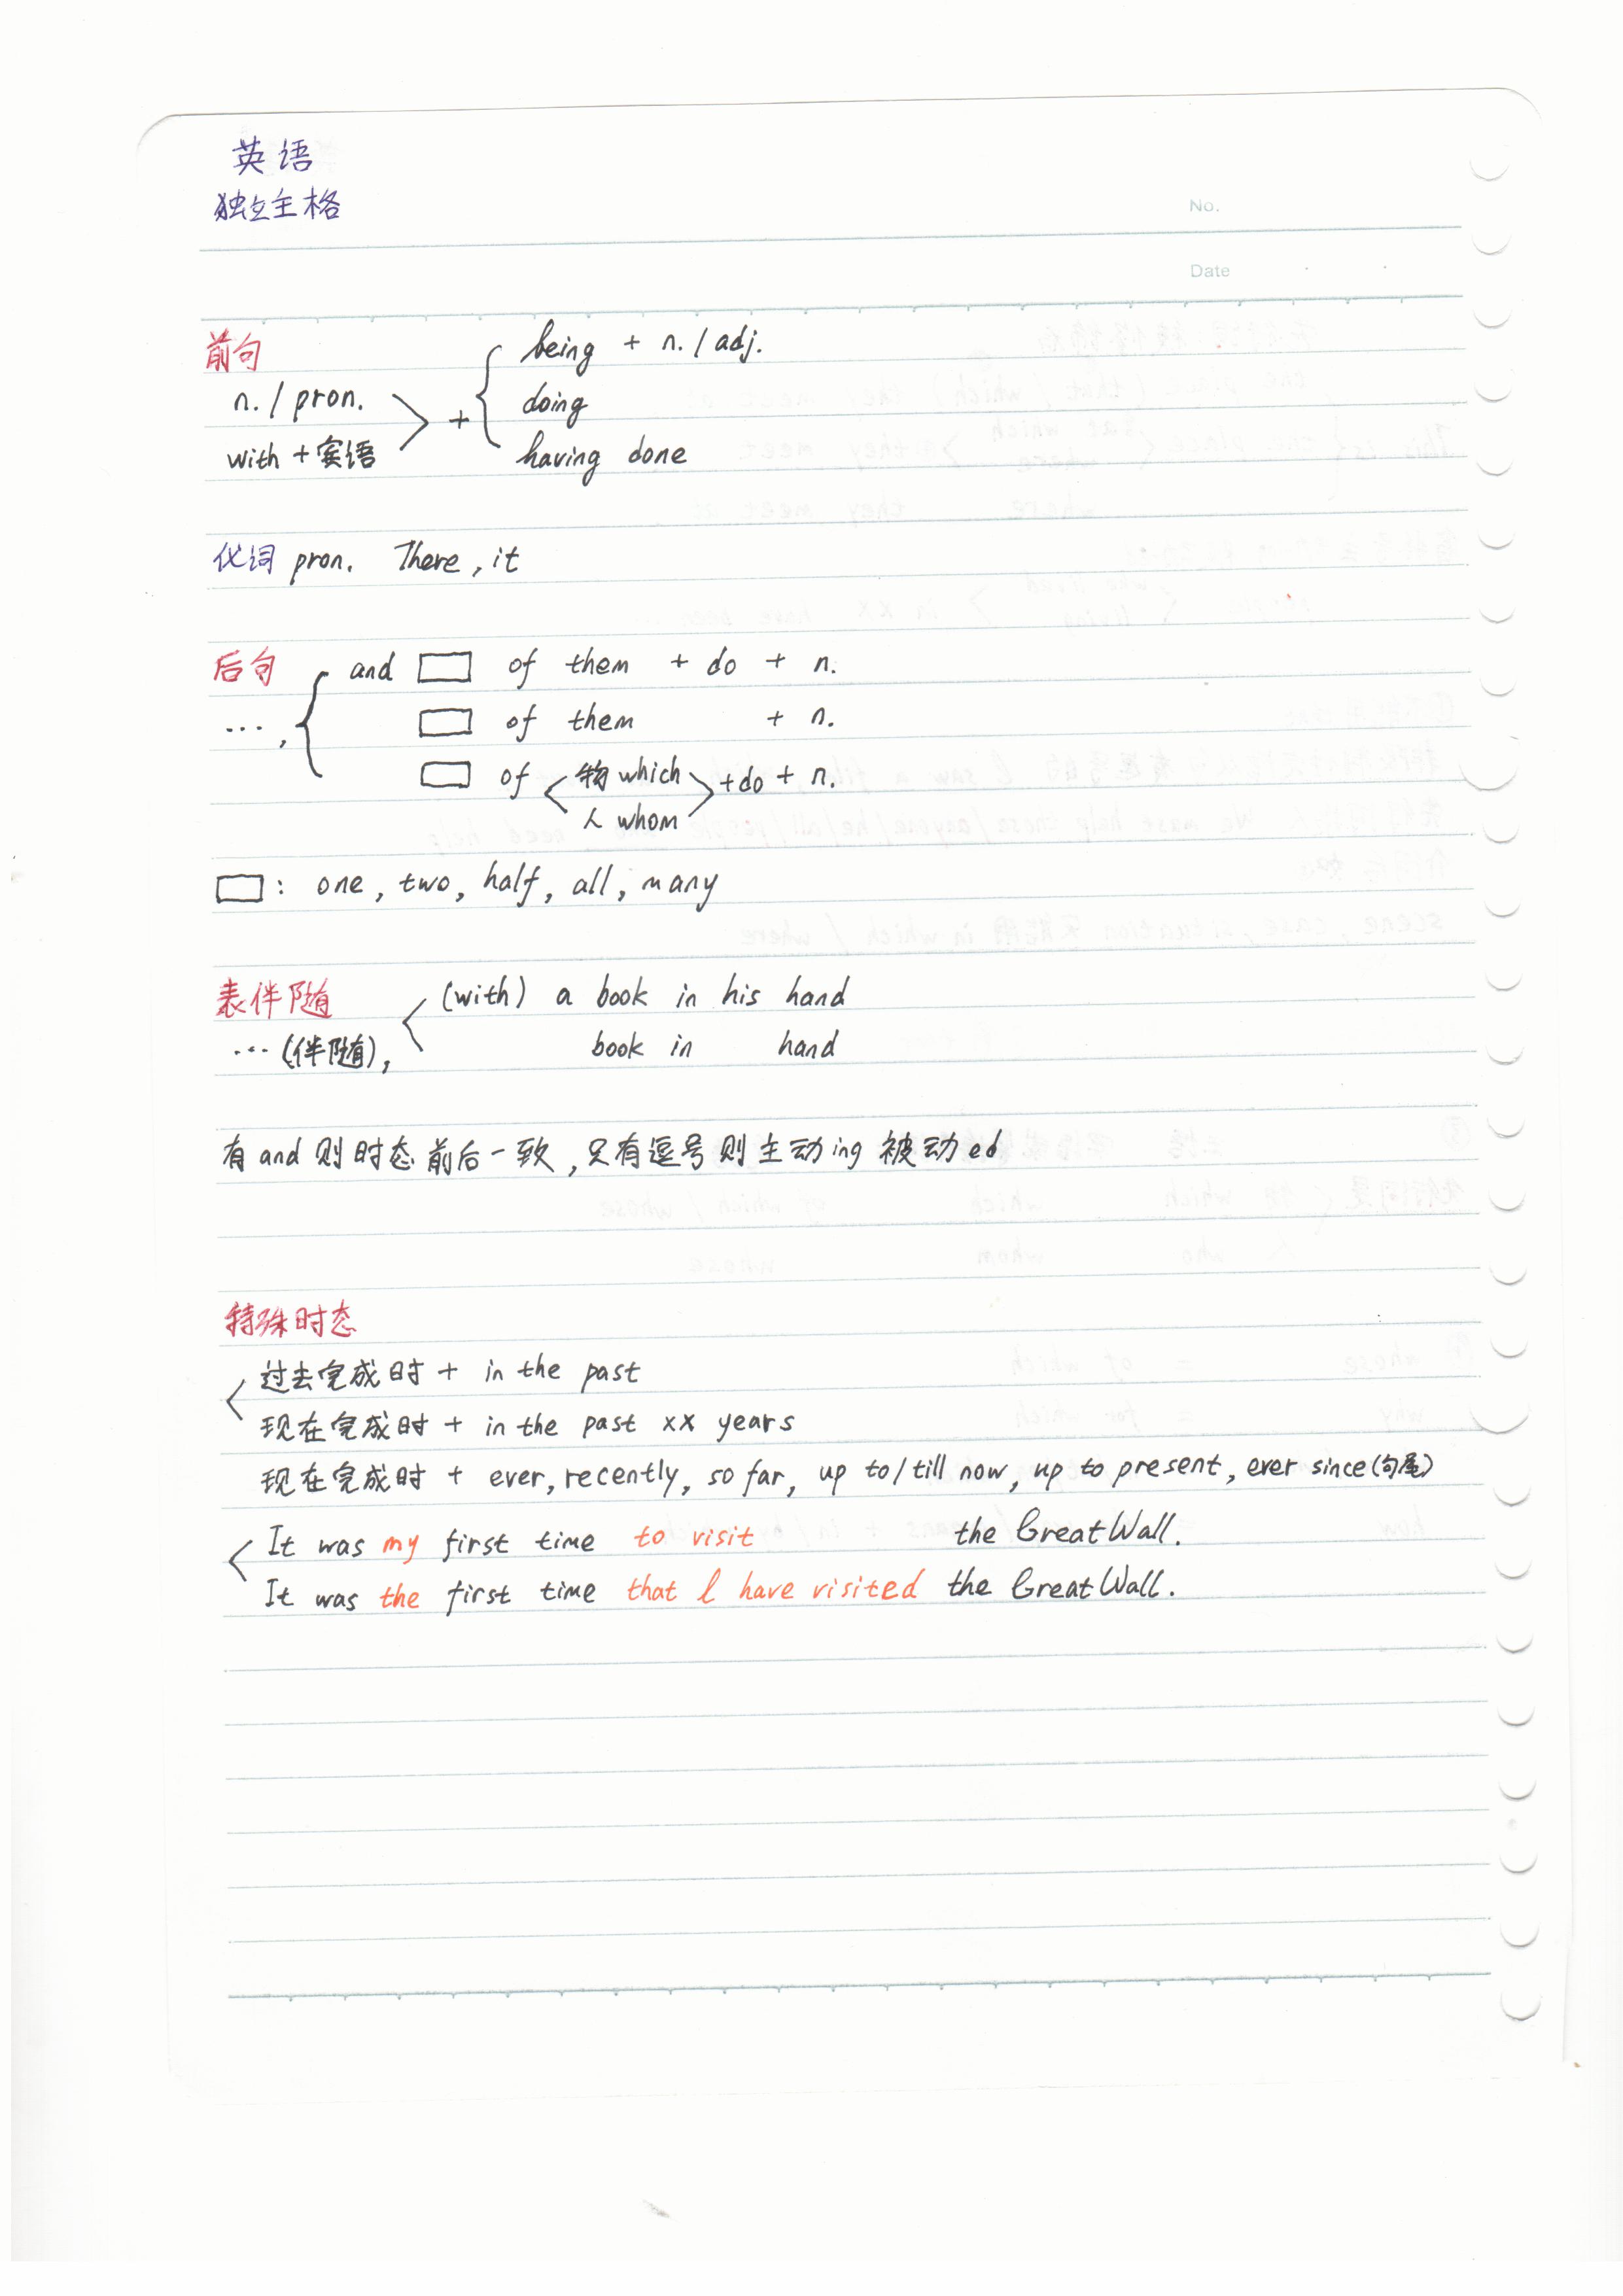 英语
独立主格
No.
Date
前句
being + n. / adj.
n. / pron.
+
doing
with + 宾语
having done
代词 pron. There, it
后句
and □ of them + do + n.
..., □ of them + n.
□ of 物 which + do + n.
人 whom
□: one, two, half, all, many
表伴随
(with) a book in his hand
...(伴随), book in hand
有 and 则时态前后一致,只有逗号则主动 ing 被动 ed
特殊时态
过去完成时 + in the past
现在完成时 + in the past xx years
现在完成时 + ever, recently, so far, up to / till now, up to present, ever since (句尾)
It was my first time to visit the Great Wall.
It was the first time that I have visited the Great Wall.